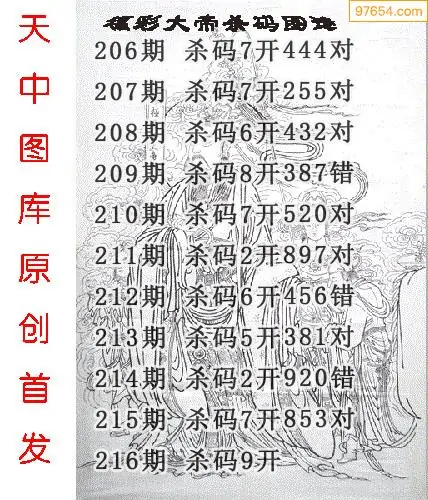 97654.com
福彩大帝杀码图迷
206期 杀码7开444对
207期 杀码7开255对
208期 杀码6开432对
209期 杀码8开387错
210期 杀码7开520对
211期 杀码2开897对
212期 杀码6开456错
213期 杀码5开381对
214期 杀码2开920错
215期 杀码7开853对
216期 杀码9开
天中图库原创首发